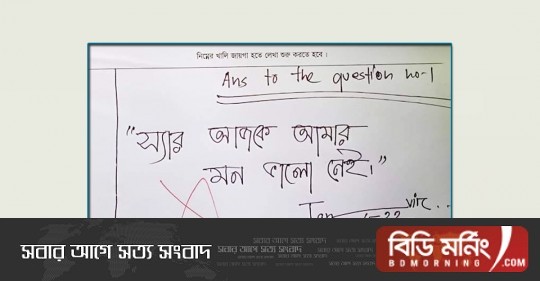 নিম্নের খালি জায়গা হতে লেখা শুরু করতে হবে।
Ans to the question no-1
"স্যার আজকে আমার
মন ভালো নেই।"
সবার আগে সত্য সংবাদ
সবার আগে সত্য সংবাদ
বিডি মর্নিং
BDMORNING.COM